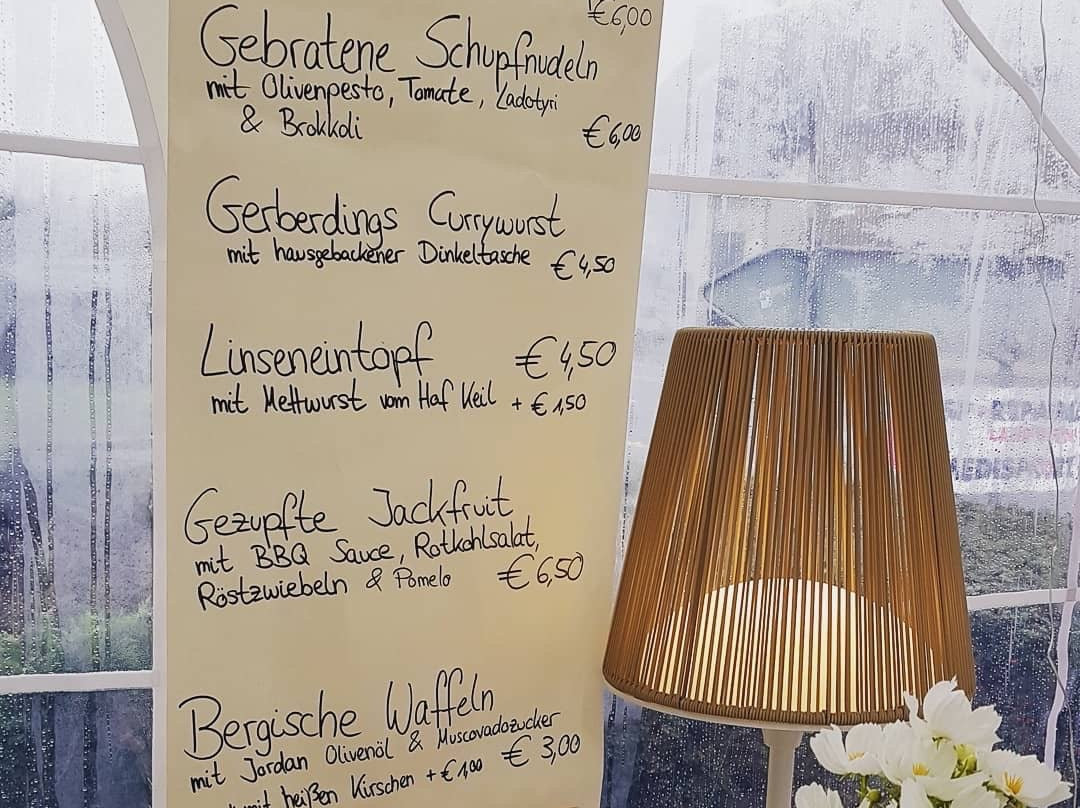 €6,00
Gebratene Schupfnudeln
mit Olivenpesto, Tomate, Ladotyri
& Brokkoli €6,00
Gerberdings Currywurst
mit hausgebackener Dinkeltasche €4,50
Linseneintopf €4,50
mit Mettwurst vom Hof Keil + €1,50
Gezupfte Jackfruit
mit BBQ Sauce, Rotkohlsalat,
Röstzwiebeln & Pomelo €6,50
Bergische Waffeln
mit Jordan Olivenöl & Muscovadozucker
€ 3,00
mit heißen Kirschen + €1,00